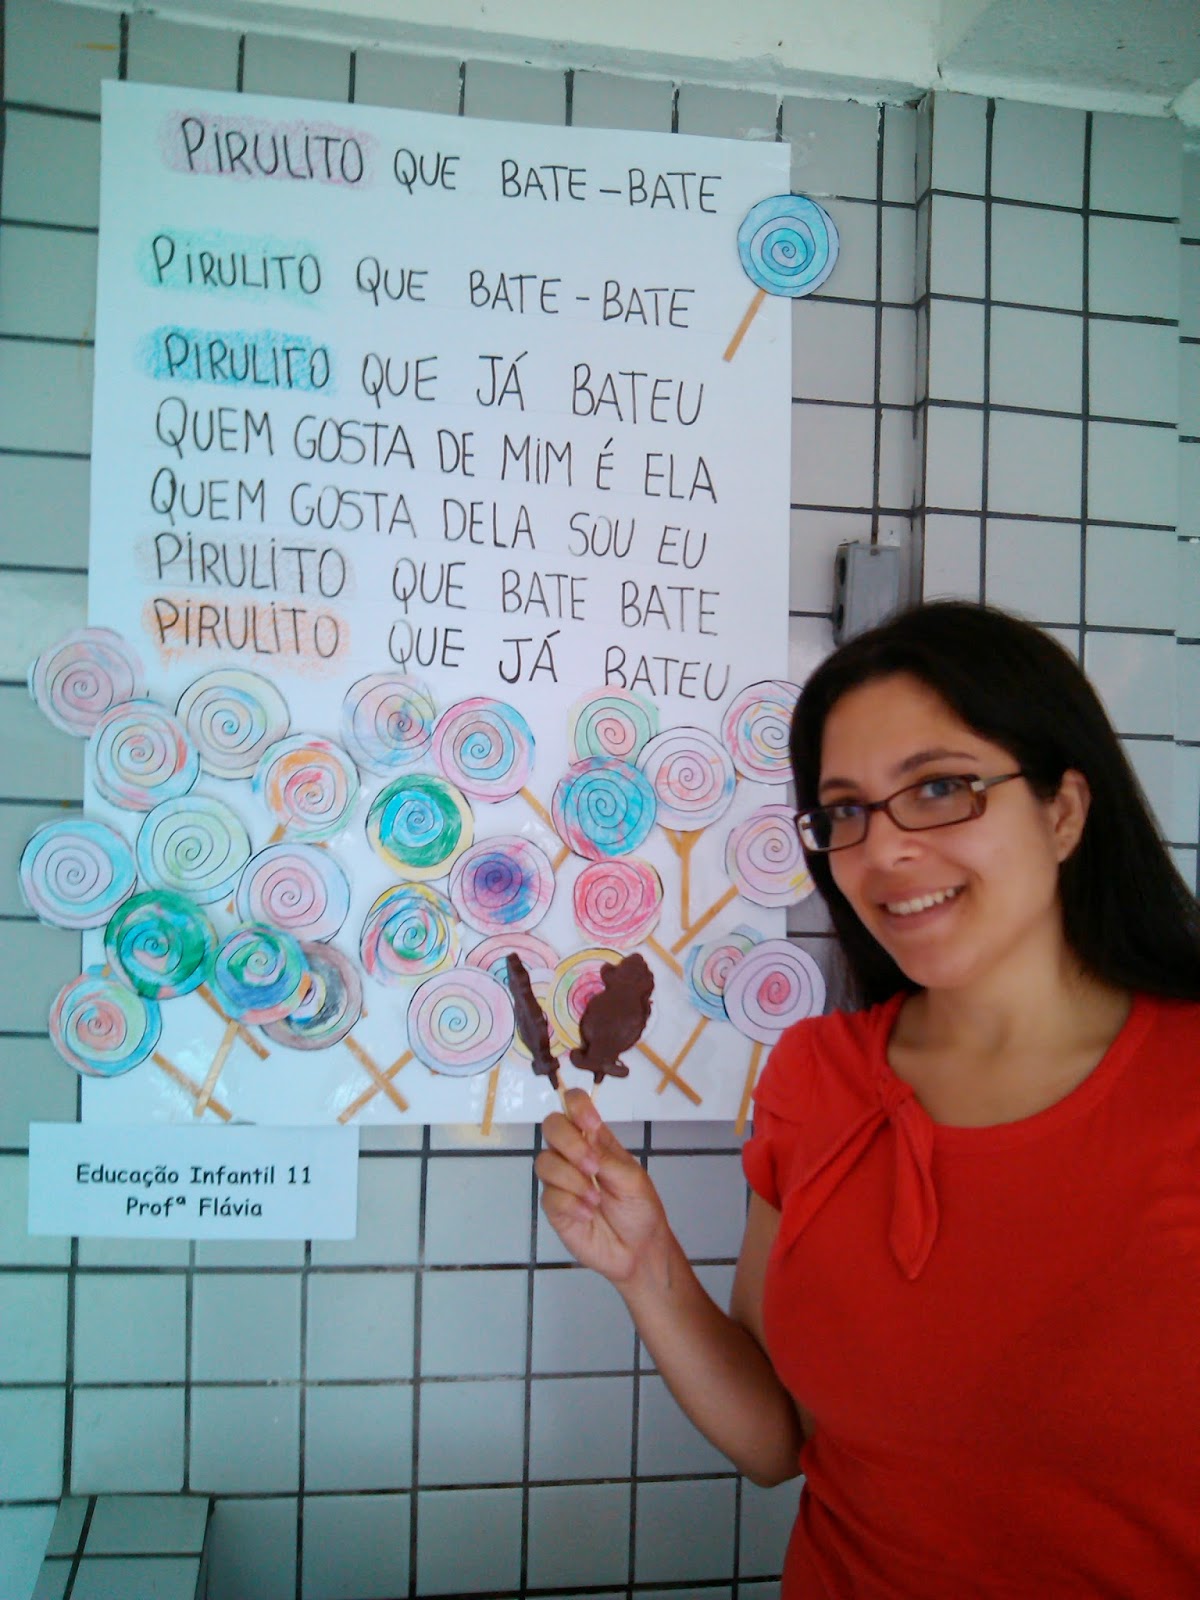 PIRULITO QUE BATE-BATE
PIRULITO QUE BATE-BATE
PIRULITO QUE JÁ BATEU
QUEM GOSTA DE MIM É ELA
QUEM GOSTA DELA SOU EU
PIRULITO QUE BATE BATE
PIRULITO QUE JÁ BATEU
Educação Infantil 11
Profª Flávia